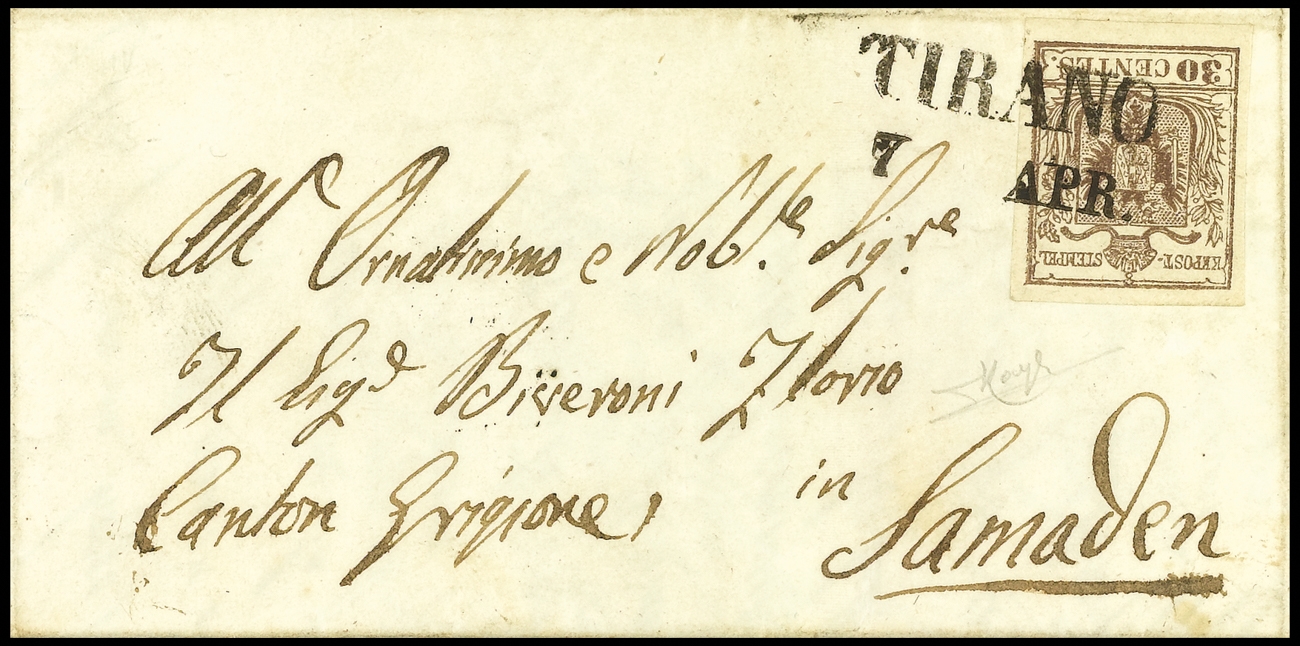 TIRANO
7 APR.
30 CENTES.
KK POST-STEMPEL
All' Ornatissimo e Nob.le Sig.re
Il Sig.e Biveroni Florio
Canton Grigione,
in Samaden